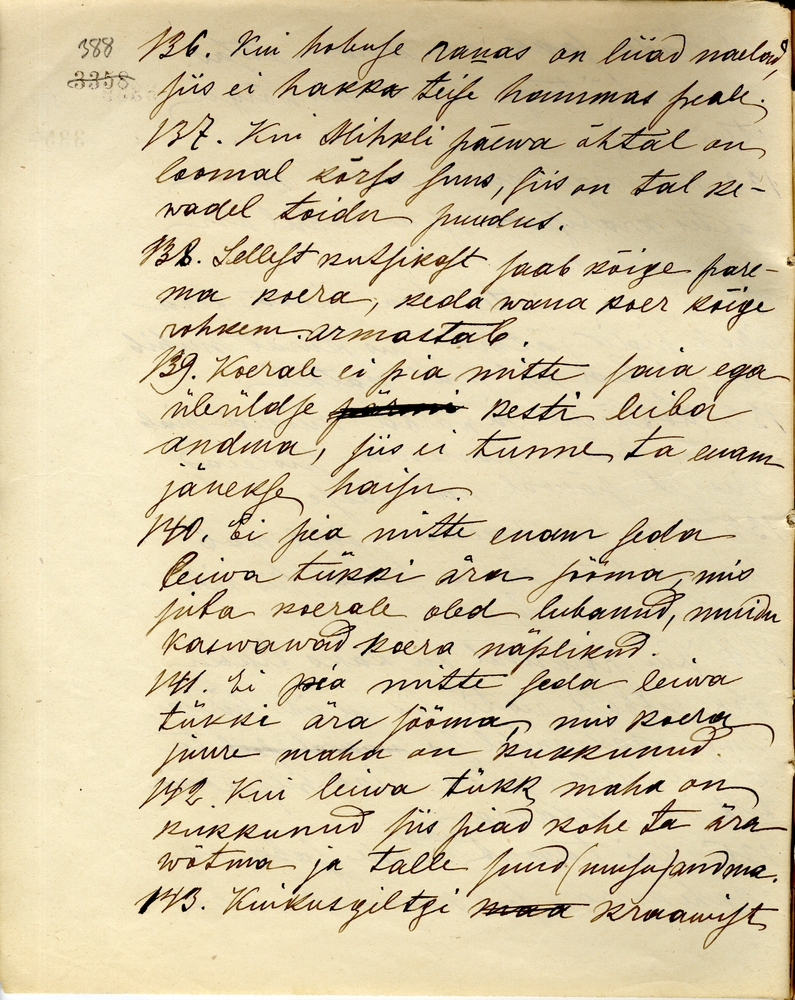 388
3358
136. Kui hobuse rauas on liiad naelad,
siis ei hakka teise hammas peale.
137. Kui Mihkli päewa õhtal on
loomal kõrss suus, siis on tal ke-
wadel toidu puudus.
138. Sellest kutsikast saab kõige pare-
ma koera, keda wana koer kõige
rohkem armastab.
139. Koerale ei pia mitte saia ega
üleüldse pärmi kesti leiba
andma, siis ei tunne ta enam
jänekse haisu.
140. Ei pea mitte enam seda
leiwa tükki ära sööma, mis
juba koerale oled lubanud, muidu
kaswawad koera näplikud.
141. Ei pia mitte seda leiwa
tükki ära sööma, mis koera
juure maha on kukkunud.
142. Kui leiwa tükk maha on
kukkunud siis piad kohe ta ära
wõtma ja talle suud (musu) andma.
143. Kui kusgiltgi maa kraawist